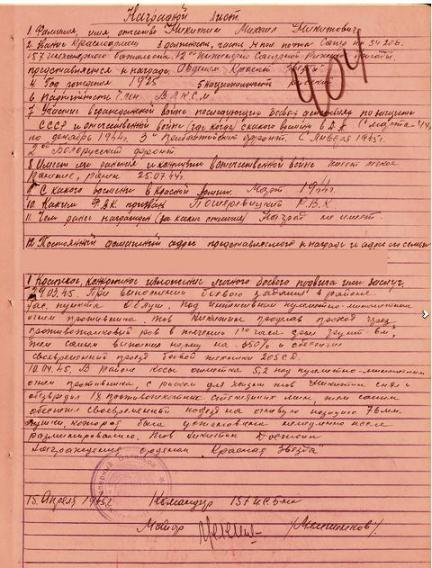 Наградной лист
1 Фамилия, имя, отчество Никитин Михаил Никитович
2. Звание Красноармеец 3 должность, часть
157 инженерного батальона
представляется к награде Орденом "Красная Звезда"
4 Год рождения 1925 5 национальность русский
6. Партийность член В.Л.К.С.М.
7. Участие в гражданской войне, последующих боевых действиях по защите
СССР и отечественной войне (где, когда) с какого времени в Д.А. с марта 44
по декабрь 1944, 3й Прибалтийский фронт. С января 1945г.
2ой Белорусский фронт.
8. Имеет ли ранения и контузии в отечественной войне имеет легкое
ранение, ранен 25.07.44г.
9. С какого времени в Красной Армии Март 1944г.
10. Каким РВК призван Пошеревицкий Р.В.К.
11. Чем ранее награжден (за какие отличия) Наград не имеет.
12. Постоянный домашний адрес представляемого к награде и адрес его семьи
1 Краткое, конкретное изложение личного боевого подвига или заслуг.
03.45. При выполнении боевого задания в районе
нас. пункта под интенсивным пулеметно-минометным
огнем противника тов Никитин проделав проход через
противотанковый ров в течении 1го часа
тем самым выполнив норму на 650% и обеспечив
своевременный проход боевой техники 205 С.Д.
10.04.45. В районе косы отметка 5,2 под пулеметно-минометным
огнем противника, с риском для жизни тов Никитин снял и
обезвредил 18 противотанковых мин, тем самым
обеспечив своевременный подход на огневую позицию 76 мм.
пушки, которая была установлена немедленно после
разминирования. Тов Никитин Достоин
награждения орденом "Красная Звезда"
15 Апреля 1945г. Командир 157
Майор